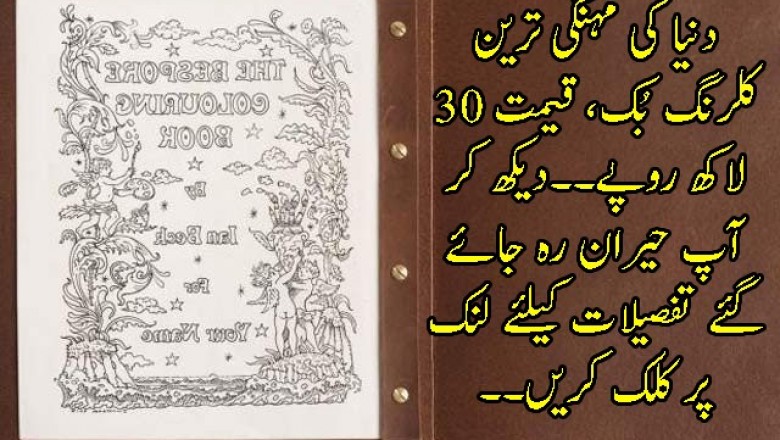 THE BESPOKE
COLOURING
BOOK
By
Ian Beck
For
Your Name
دنیا کی مہنگی ترین
کلرنگ بُک، قیمت 30
لاکھ روپے۔۔دیکھ کر
آپ حیران رہ جائے
گئے تفصیلات کیلئے لنک
پر کلک کریں۔۔